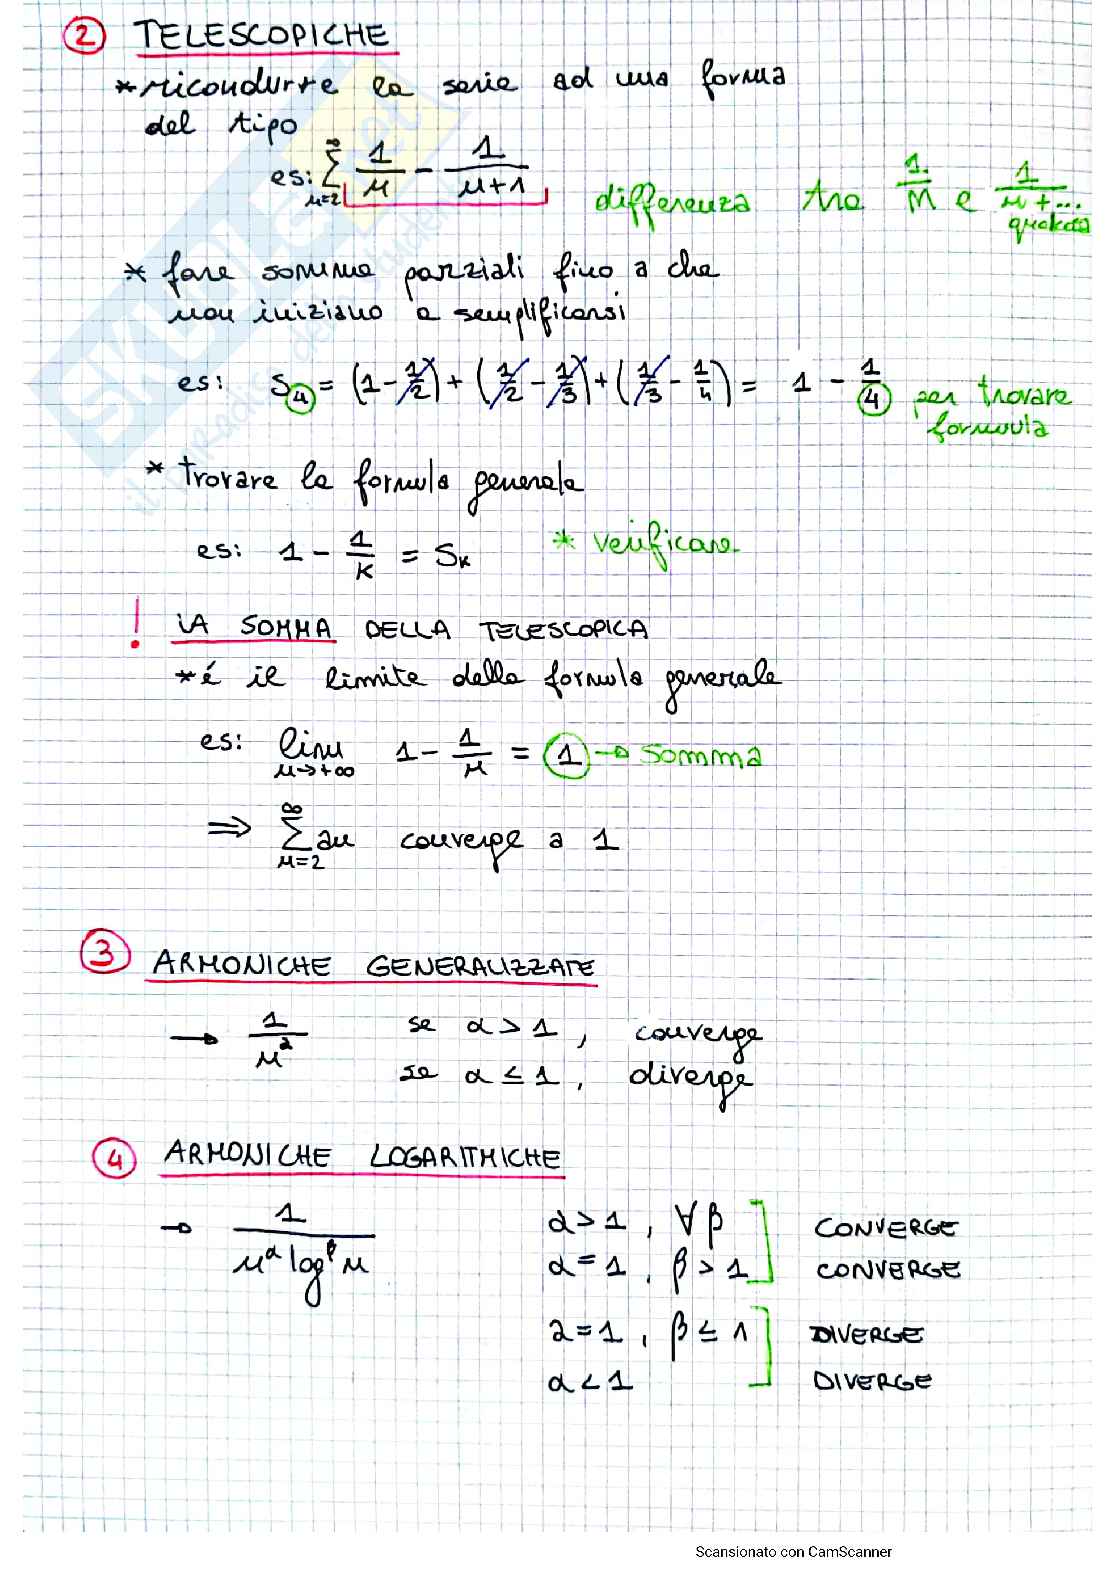 2 TELESCOPICHE
* ricondurre la serie ad una forma
del tipo
es: ∑ n=2 ∞ 1/n - 1/n+1
differenza tra 1/n e 1/n+... qualcosa
* fare somme parziali fino a che
non iniziano a semplificarsi
es: S4 = (1 - 1/2) + (1/2 - 1/3) + (1/3 - 1/4) = 1 - 1/4 per trovare
formula
* trovare la formula generale
es: 1 - 1/k = Sk * verificare
! LA SOMMA DELLA TELESCOPICA
* é il limite della formula generale
es: lim n→+∞ 1 - 1/n = 1 → somma
⇒ ∑ n=2 ∞ an converge a 1
3 ARMONICHE GENERALIZZATE
→ 1/n^α se α > 1, converge
se α ≤ 1, diverge
4 ARMONICHE LOGARITMICHE
→ 1/n^α log^β n
α > 1, ∀β CONVERGE
α = 1, β > 1 CONVERGE
α = 1, β ≤ 1 DIVERGE
α < 1 DIVERGE
Scansionato con CamScanner